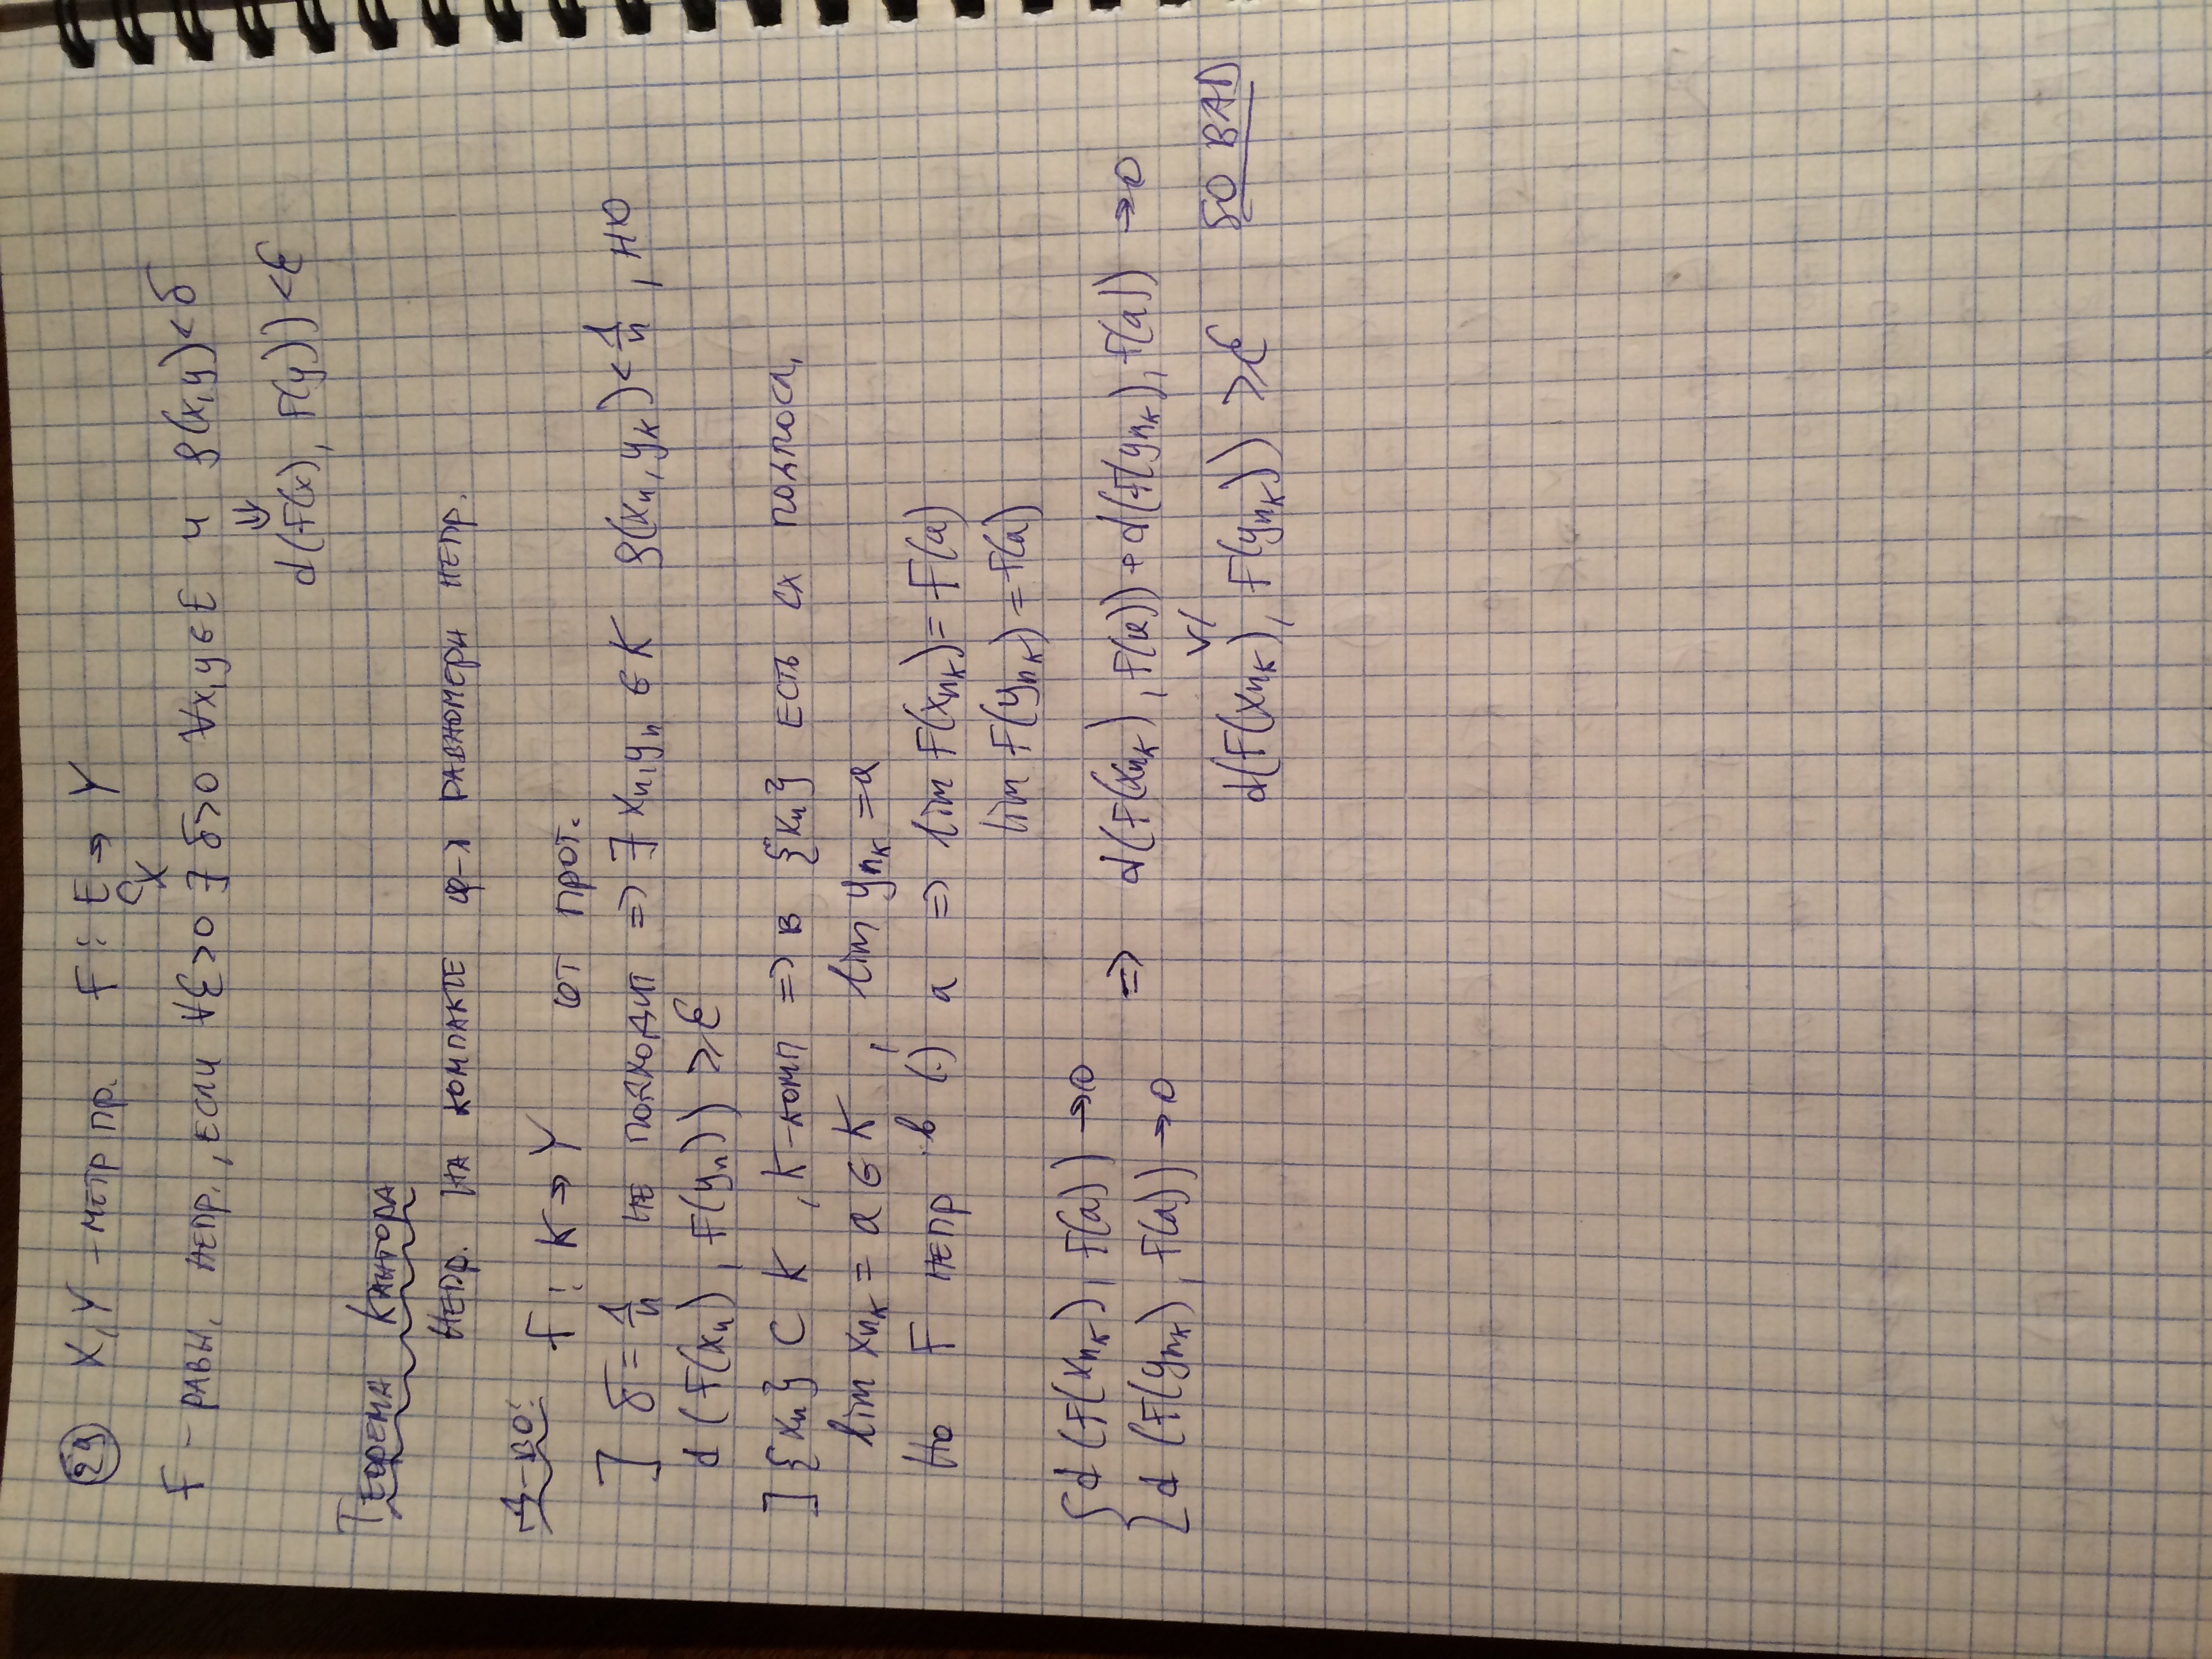 29 X, Y – метр пр. F : E → Y
⊂ X
F – равн. непр., если ∀ε>0 ∃ δ>0 ∀x,y∈E и ρ(x,y)<δ
⇓
d(F(x), F(y)) <ε
Теорема Кантора
Непр. на компакте ф-я равномерн непр.
Д-во:
F : K → Y от прот.
] δ = 1/n не подходит => ∃ xn, yn ∈ K ρ(xn, yk) < 1/n , но
d (F(xn), F(yn)) ≥ ε
] {xn} ⊂ K , K-комп => в {xn} есть сх подпосл.
lim xnk = a ∈ K , lim ynk = a
Но F непр в (.) a => lim F(xnk) = F(a)
lim F(ynk) = F(a)
{ d (F(xnk), F(a)) → 0
d (F(ynk), F(a)) → 0 => d(F(xnk), F(a)) + d(F(ynk), F(a)) → 0
∨/
d(F(xnk), F(ynk)) ≥ ε SO BAD